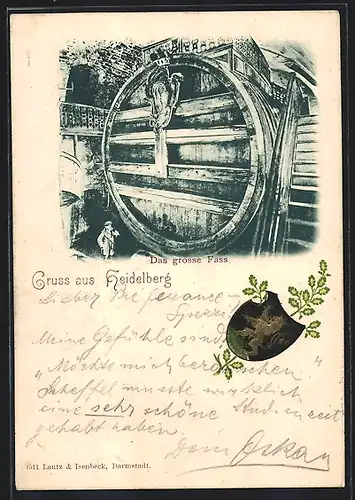 Das grosse Fass
Gruss aus Heidelberg
Lieber
Meine Gefühle sind
"Möchte mich
Scheffel musste wirklich
eine sehr schöne Studienzeit
gehabt haben.
Dein Oskar
Lautz & Isenbeck, Darmstadt.